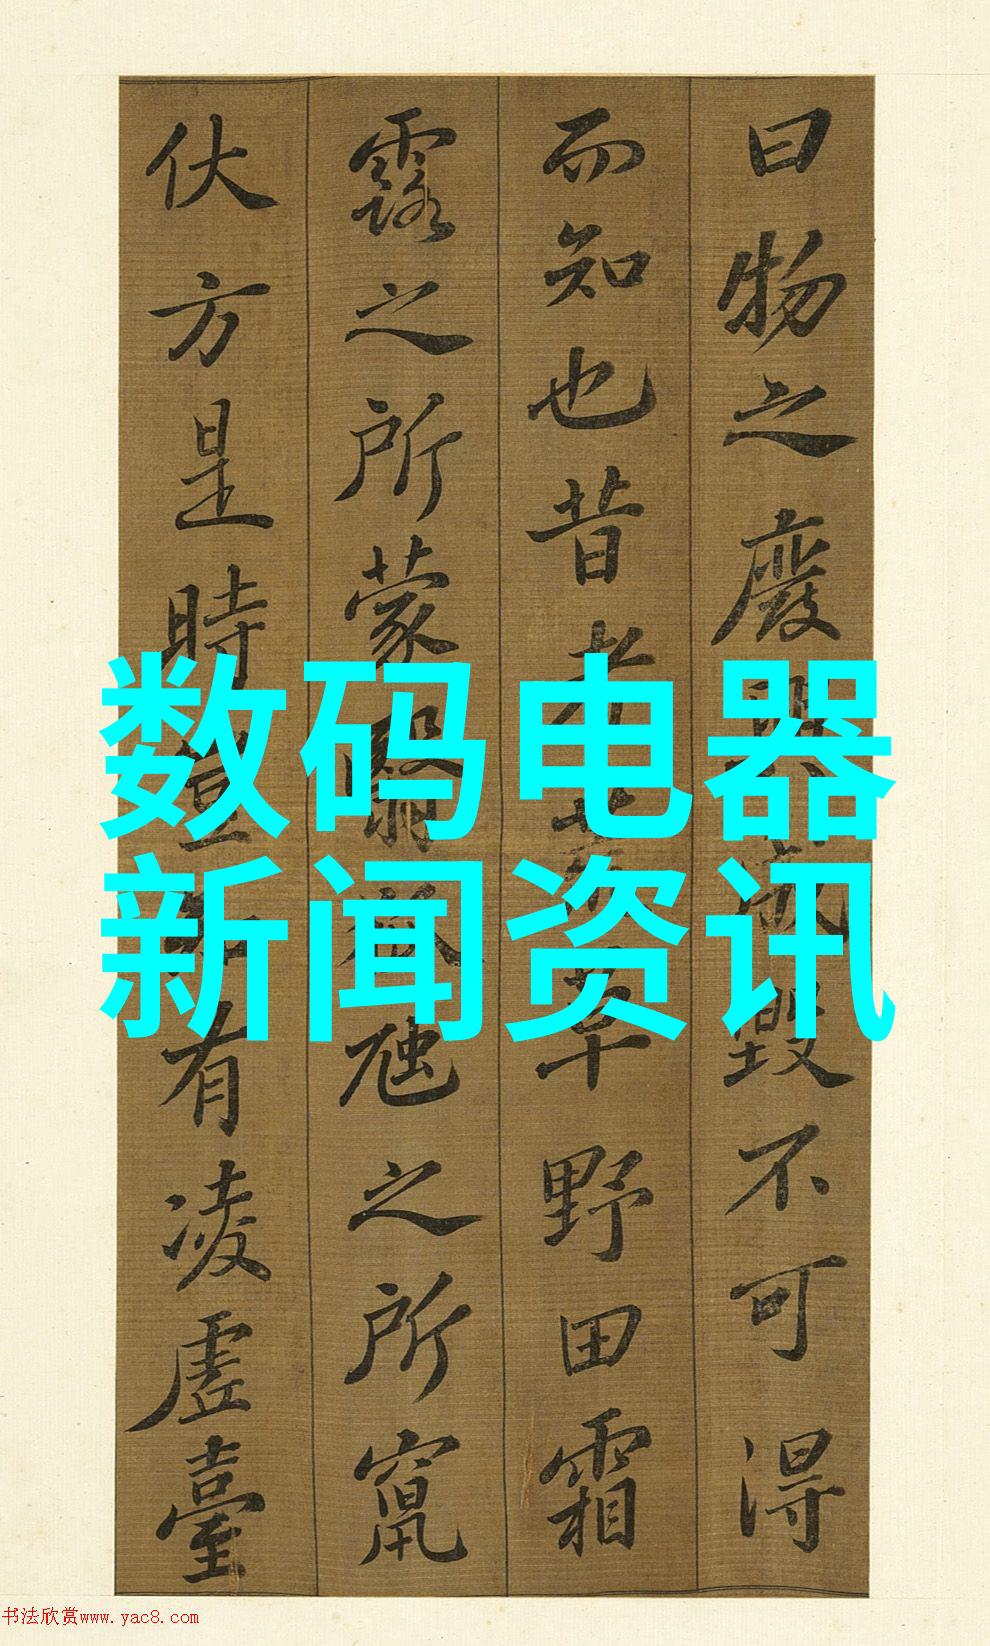 曰物之廢興成毀不可得
而知也昔者荒草野田霜
露之所蒙翳狐虺之所竄
伏方是時豈知有凌虛臺
数码电器
新闻资讯
书法欣赏www.yac8.com